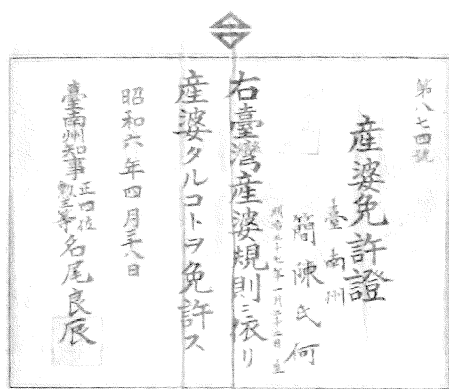 第八七四號
産婆免許證
臺南州
簡陳氏何
明治三十七年一月二十二日生
右臺灣産婆規則ニ依リ
産婆タルコトヲ免許ス
昭和六年四月二十八日
臺南州知事正四位勲三等名尾良辰